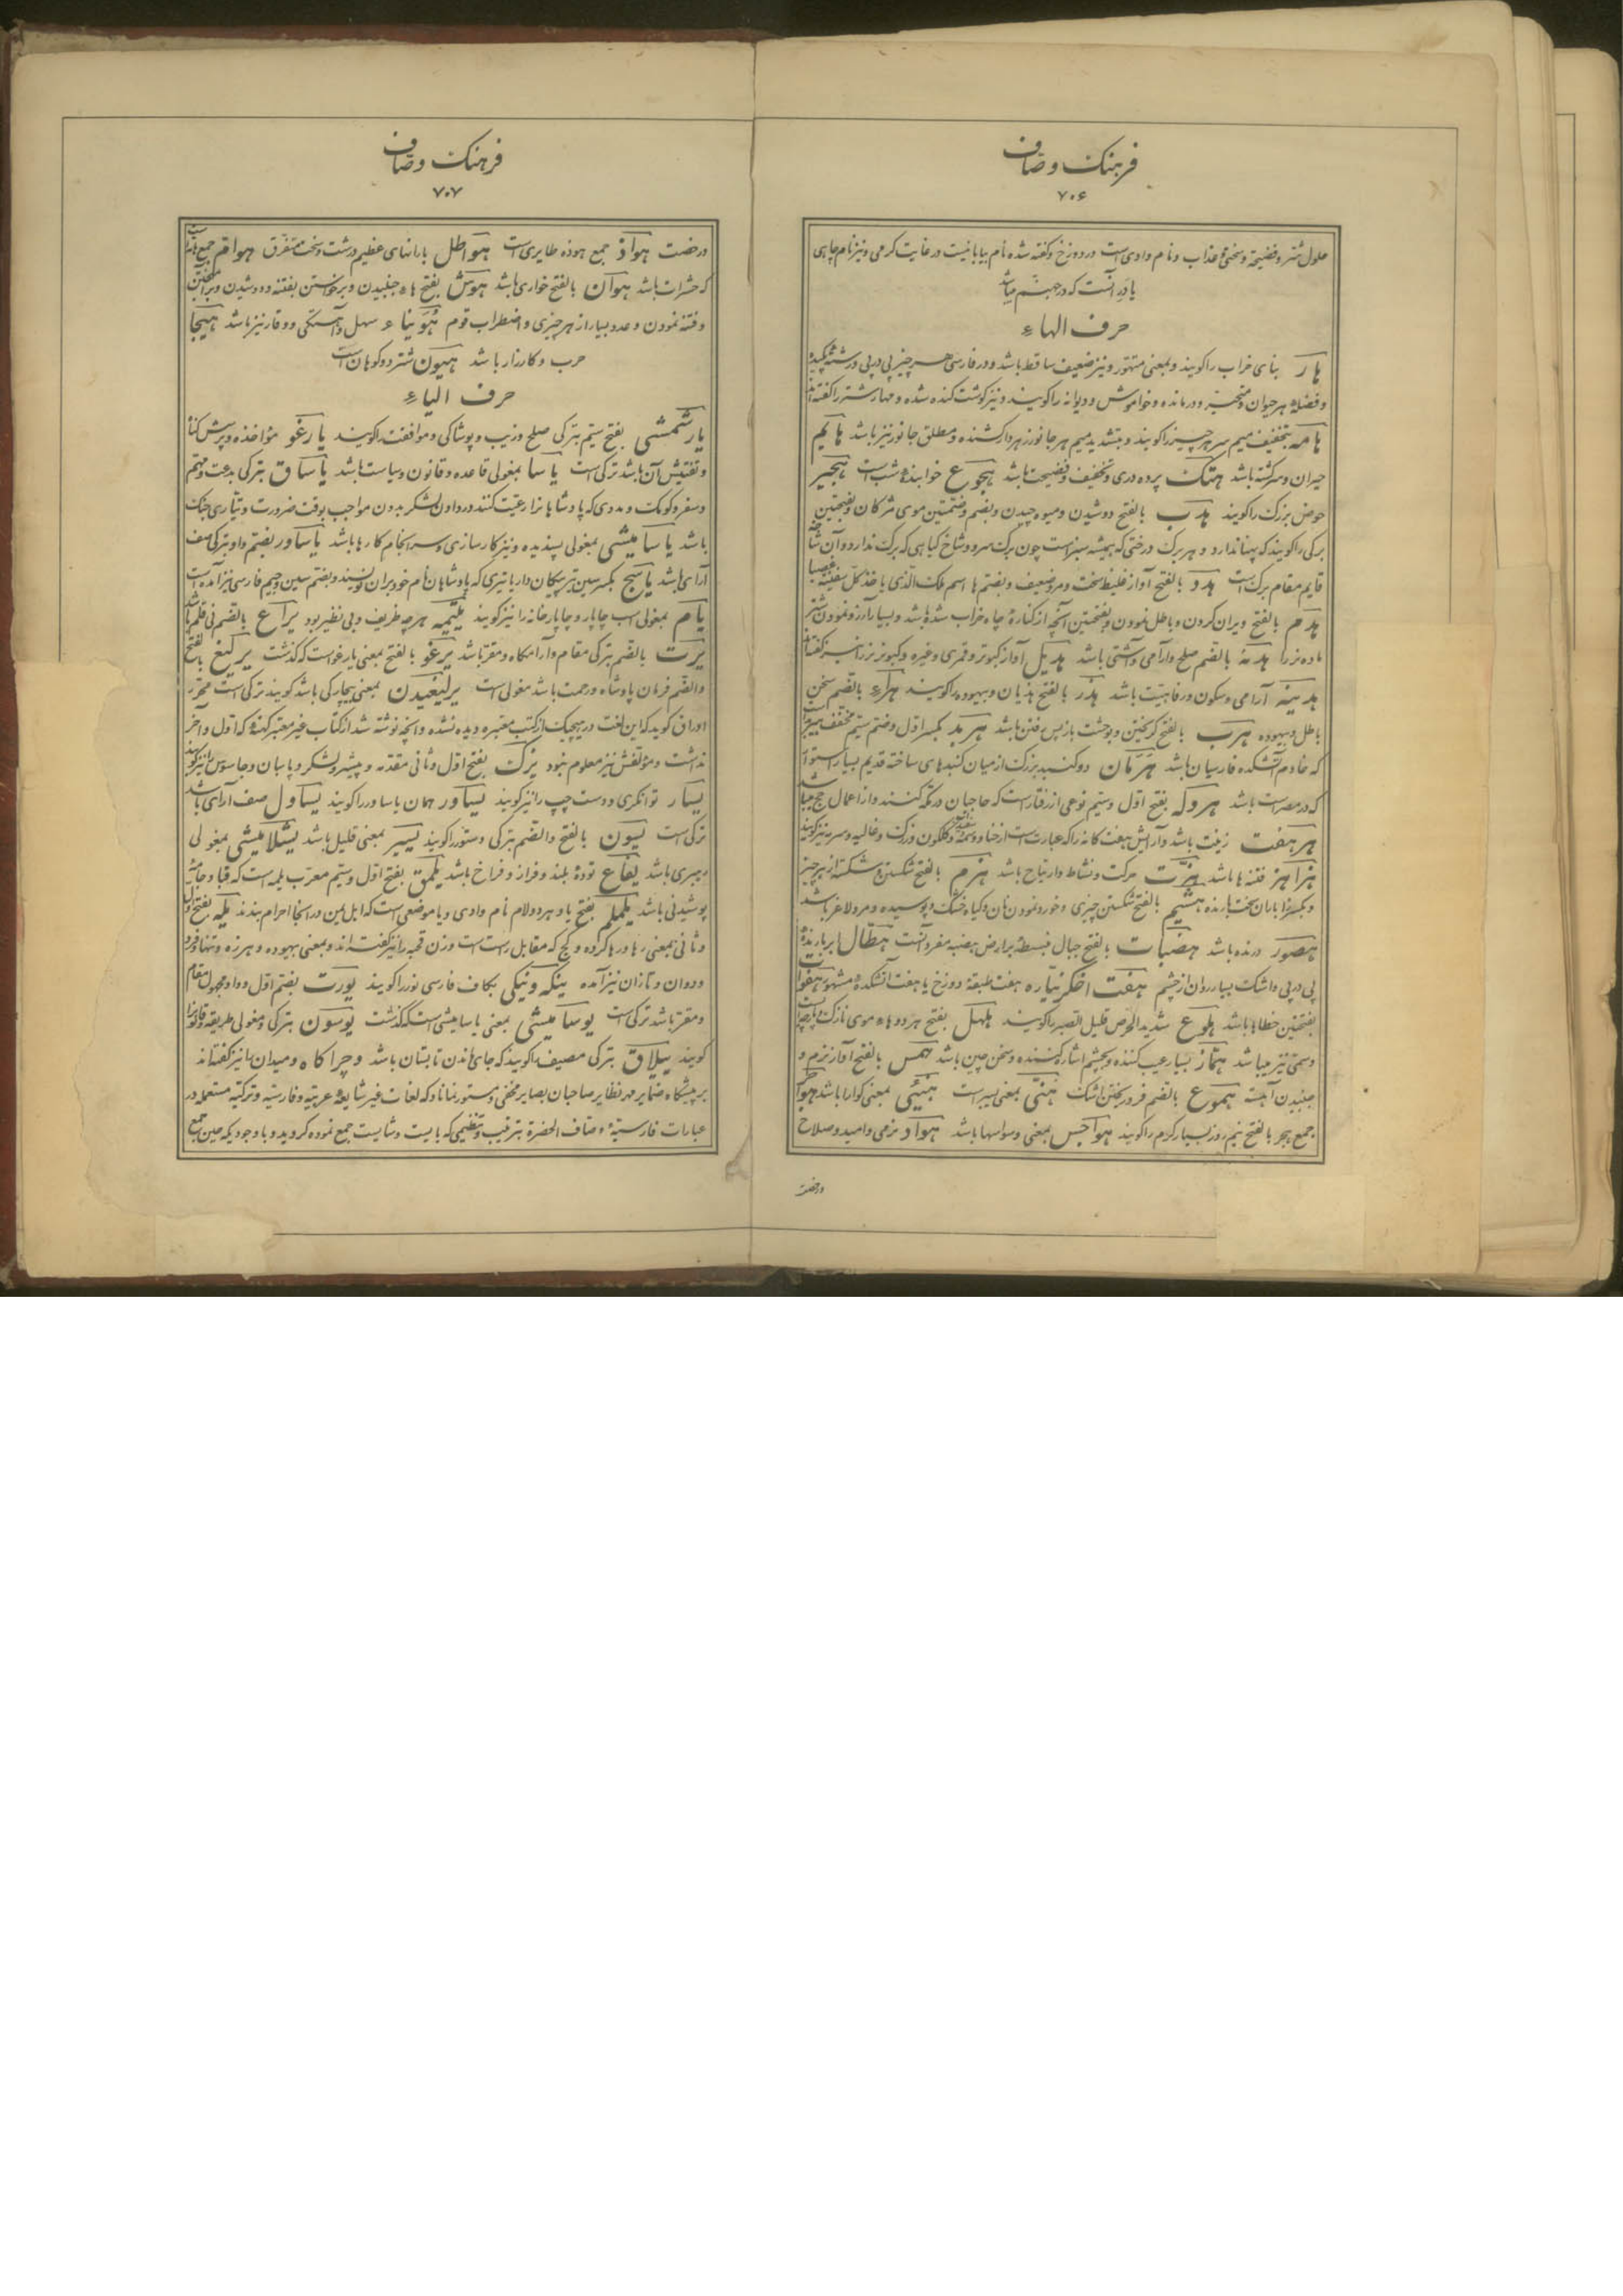 فرهنک وصاف
۷۰۶
حلول شر و فضیحة و سختی و عذاب و نام وادی است در دوزخ و کفته شده نام بیابانیست در غایت کرمی و نیز نام چاهی
یا در آنست که در جهنم میباشد
حرف الهاء
هار بنای خراب را کویند و بمعنی متهور و نیز ضعیف ساقط باشد و در فارسی هر چیز پی در پی در رشته کشیده
و فضله هر حیوان و متحیر و درمانده و خواموش و دیوانه را کویند و نیز کوشت کنده شده و مهار شتر را کفته اند
هامه بتخفیف میم سر هر چیز را کویند و بتشدید میم هر جانور زهردار کشنده و مطلق جانور نیز باشد هایم
حیران و سرکشته باشد هتک پرده دری و تخفیف و فضیحت باشد هجوع خوابنده شب است هجیر
حوض بزرک را کویند هدب بالفتح دوشیدن و میوه چیدن و بضم و ضمتین موی مژکان و بفتحتین
برکی را کویند که پهنا ندارد و هر برک درختی که همیشه سبز است چون برک سرو و شاخ کیاهی که برک ندارد و آن شاخه
قایم مقام برک است هدد بالفتح آواز غلیظ سخت و مرد ضعیف و بضم ها اسم ملک الذی یاخذ کل سفینة غصبا
هدم بالفتح ویران کردن و باطل نمودن و بفتحتین آنچه از کنارۀ چاه خراب شده باشد و بسیار آرزو نمودن شتر
ماده نر را هدنه بالضم صلح و آرامی و آشتی باشد هدیل آواز کبوتر و قمری و غیره و کبوتر نر را نیز کفته اند
هدینه آرامی و سکون و رفاهیت باشد هذر بالفتح هذیان و بیهوده را کویند هراء بالضم سخن
باطل و بیهوده هرب بالفتح کریختن و بوحشت باز پس رفتن باشد هربد بکسر اول و ضم سیم مخفف هیربد است
که خادم آتشکده فارسیان باشد هرمان دو کنبد بزرک از میان کنبدهای ساخته قدیم بسیار استوار
که در مصر است باشد هروله بفتح اول و سیم نوعی از رفتار است که حاجیان در مکه کنند و از اعمال حج میباشد
هر هفت زینت باشد و آرایش هفت کانه را که عبارت است از حنا و وسمه و کلکون و زرک و غالیه و سرمه نیز کویند
هزاهز فتنه ها باشد هزت حرکت و نشاط و ارتیاح باشد هزم بالفتح شکستن و شکسته از هر چیز
و بکسر زا باران سخت بارنده هشیم بالفتح شکستن چیزی و خورد نمودن نان و کیاه خشک و پوسیده و مرد لاغر باشد
هصور درنده باشد هضبات بالفتح جبال منبسط بر ارض هضبه مفرد آنست هطال ابر بارندۀ
پی در پی و اشک بسیار روان از چشم هفت اخکر نیاره هفت طبقۀ دوزخ یا هفت آتشکدۀ مشهور هفوات
بفتحتین خطاها باشد هلوع شدید الحرص قلیل الصبر را کویند هلهل بفتح هر دو هاء موی نازک
و سمی نیز میباشد هماز بسیار عیب کننده و بچشم اشاره کننده و سخن چین باشد همس بالفتح آواز نرم و
جنبیدن آهسته هموع بالضم فرو ریختن اشک هنی بمعنی سیر است هنیئ بمعنی کوارا باشد هواجر
جمع هجر بالفتح نیم روز بسیار کرم را کویند هواجس بمعنی وسواسها باشد هواد نرمی و امید و صلاح
و رخصت
فرهنک وصاف
۷۰۷
و رخصت هواذ جمع هوذه طایری است هواطل بارانهای عظیم درشت و سخت متفرق هوام جمع هامه
که حشرات باشد هوان بالفتح خواری باشد هوش بفتح هاء جنبیدن و برخواستن بفتنه و دوشیدن و برانکیختن
و فتنه نمودن و عدد بسیار از هر چیزی و اضطراب قوم هوینا سهل و آهستکی و وقار نیز باشد هیجا
حرب و کارزار باشد هیون شتر دو کوهان است
حرف الیاء
یارشمشی بفتح سیم بترکی صلح و زیب و پوشاکی و موافقت را کویند یارغو مواخذه و پرسش کناه
و تفتیش آن باشد ترکی است یاسا بمغولی قاعده و قانون و سیاست باشد یاساق بترکی بدعت و مهتم
و سفر و کومک و مددی که پادشاهان از رعیت کنند در دادن لشکر بدون مواجب بوقت ضرورت و تیاری جنک
باشد یاسامیشی بمغولی پسندیده و نیز کارسازی و سرانجام کارها باشد یاساور بضم واو بترکی صف
آرای باشد یاسج بکسر سین تیر پیکان دار یا تیری که پادشاهان نام خود بران نویسند و بضم سین و جیم فارسی نیز آمده است
یام بمغولی اسب چاپار و چاپارخانه را نیز کویند یتیمه هر چه ظریف و بی نظیر بود یراع بالضم نی قلم باشد
یرت بالضم بترکی مقام و آرامکاه و مقر باشد یرغو بالفتح بمعنی یارغو است که کذشت یرلیغ بالفتح
والضم فرمان پادشاه و رحمت باشد مغولی است یرلیغیدن بمعنی بیچارکی باشد کویند ترکی است محرر
اوراق کوید که این لغت در هیچیک از کتب معتبره دیده نشده و آنچه نوشته شد از کتاب غیر معتبر کهنۀ که اول و آخر
نداشت و مؤلفش نیز معلوم نبود یزک بفتح اول و ثانی مقدمه و پیشرو لشکر و پاسبان و جاسوس را نیز کویند
یسار توانکری و دست چپ را نیز کویند یساور همان یاساور را کویند یساول صف آرای باشد
ترکی است یسون بالفتح والضم بترکی دستور را کویند یسیر بمعنی قلیل باشد یشلامیشی بمغولی
رهبری باشد یفاع تودۀ بلند و فراز و فراخ باشد یلمق بفتح اول و سیم معرب یلمه است که قبا و جامۀ
پوشیدنی باشد یلملم بفتح یا و هر دو لام نام وادی و یا موضعی است که اهل یمن در انجا احرام بندند یله بفتح اول
و ثانی بمعنی رها و رها کرده و کج که مقابل راست است و زن قحبه را نیز کفته اند و بمعنی بیهوده و هرزه و تنها و فرد
و دوان و تازان نیز آمده ینکه و نیکی بکاف فارسی نو را کویند یورت بضم اول و واو مجهول مقام
و مقر باشد ترکی است یوسامیشی بمعنی یاسامیشی است که کذشت یوسون بترکی و مغولی طریقه و قانون را
کویند ییلاق بترکی مصیف را کویند که جای ماندن تابستان باشد و چراکاه و میدان را نیز کفته اند
بر پیشکاه ضمایر مهر نظایر صاحبان بصایر مخفی و مستور نماناد که لغات غیر شایعۀ عربیه و فارسیه و ترکیه مستعمله در
عبارات فارسیۀ وصاف الحضرة بترتیب و تنظیمی که بایست و شایست جمع نموده کردید و با وجودیکه حین جمع